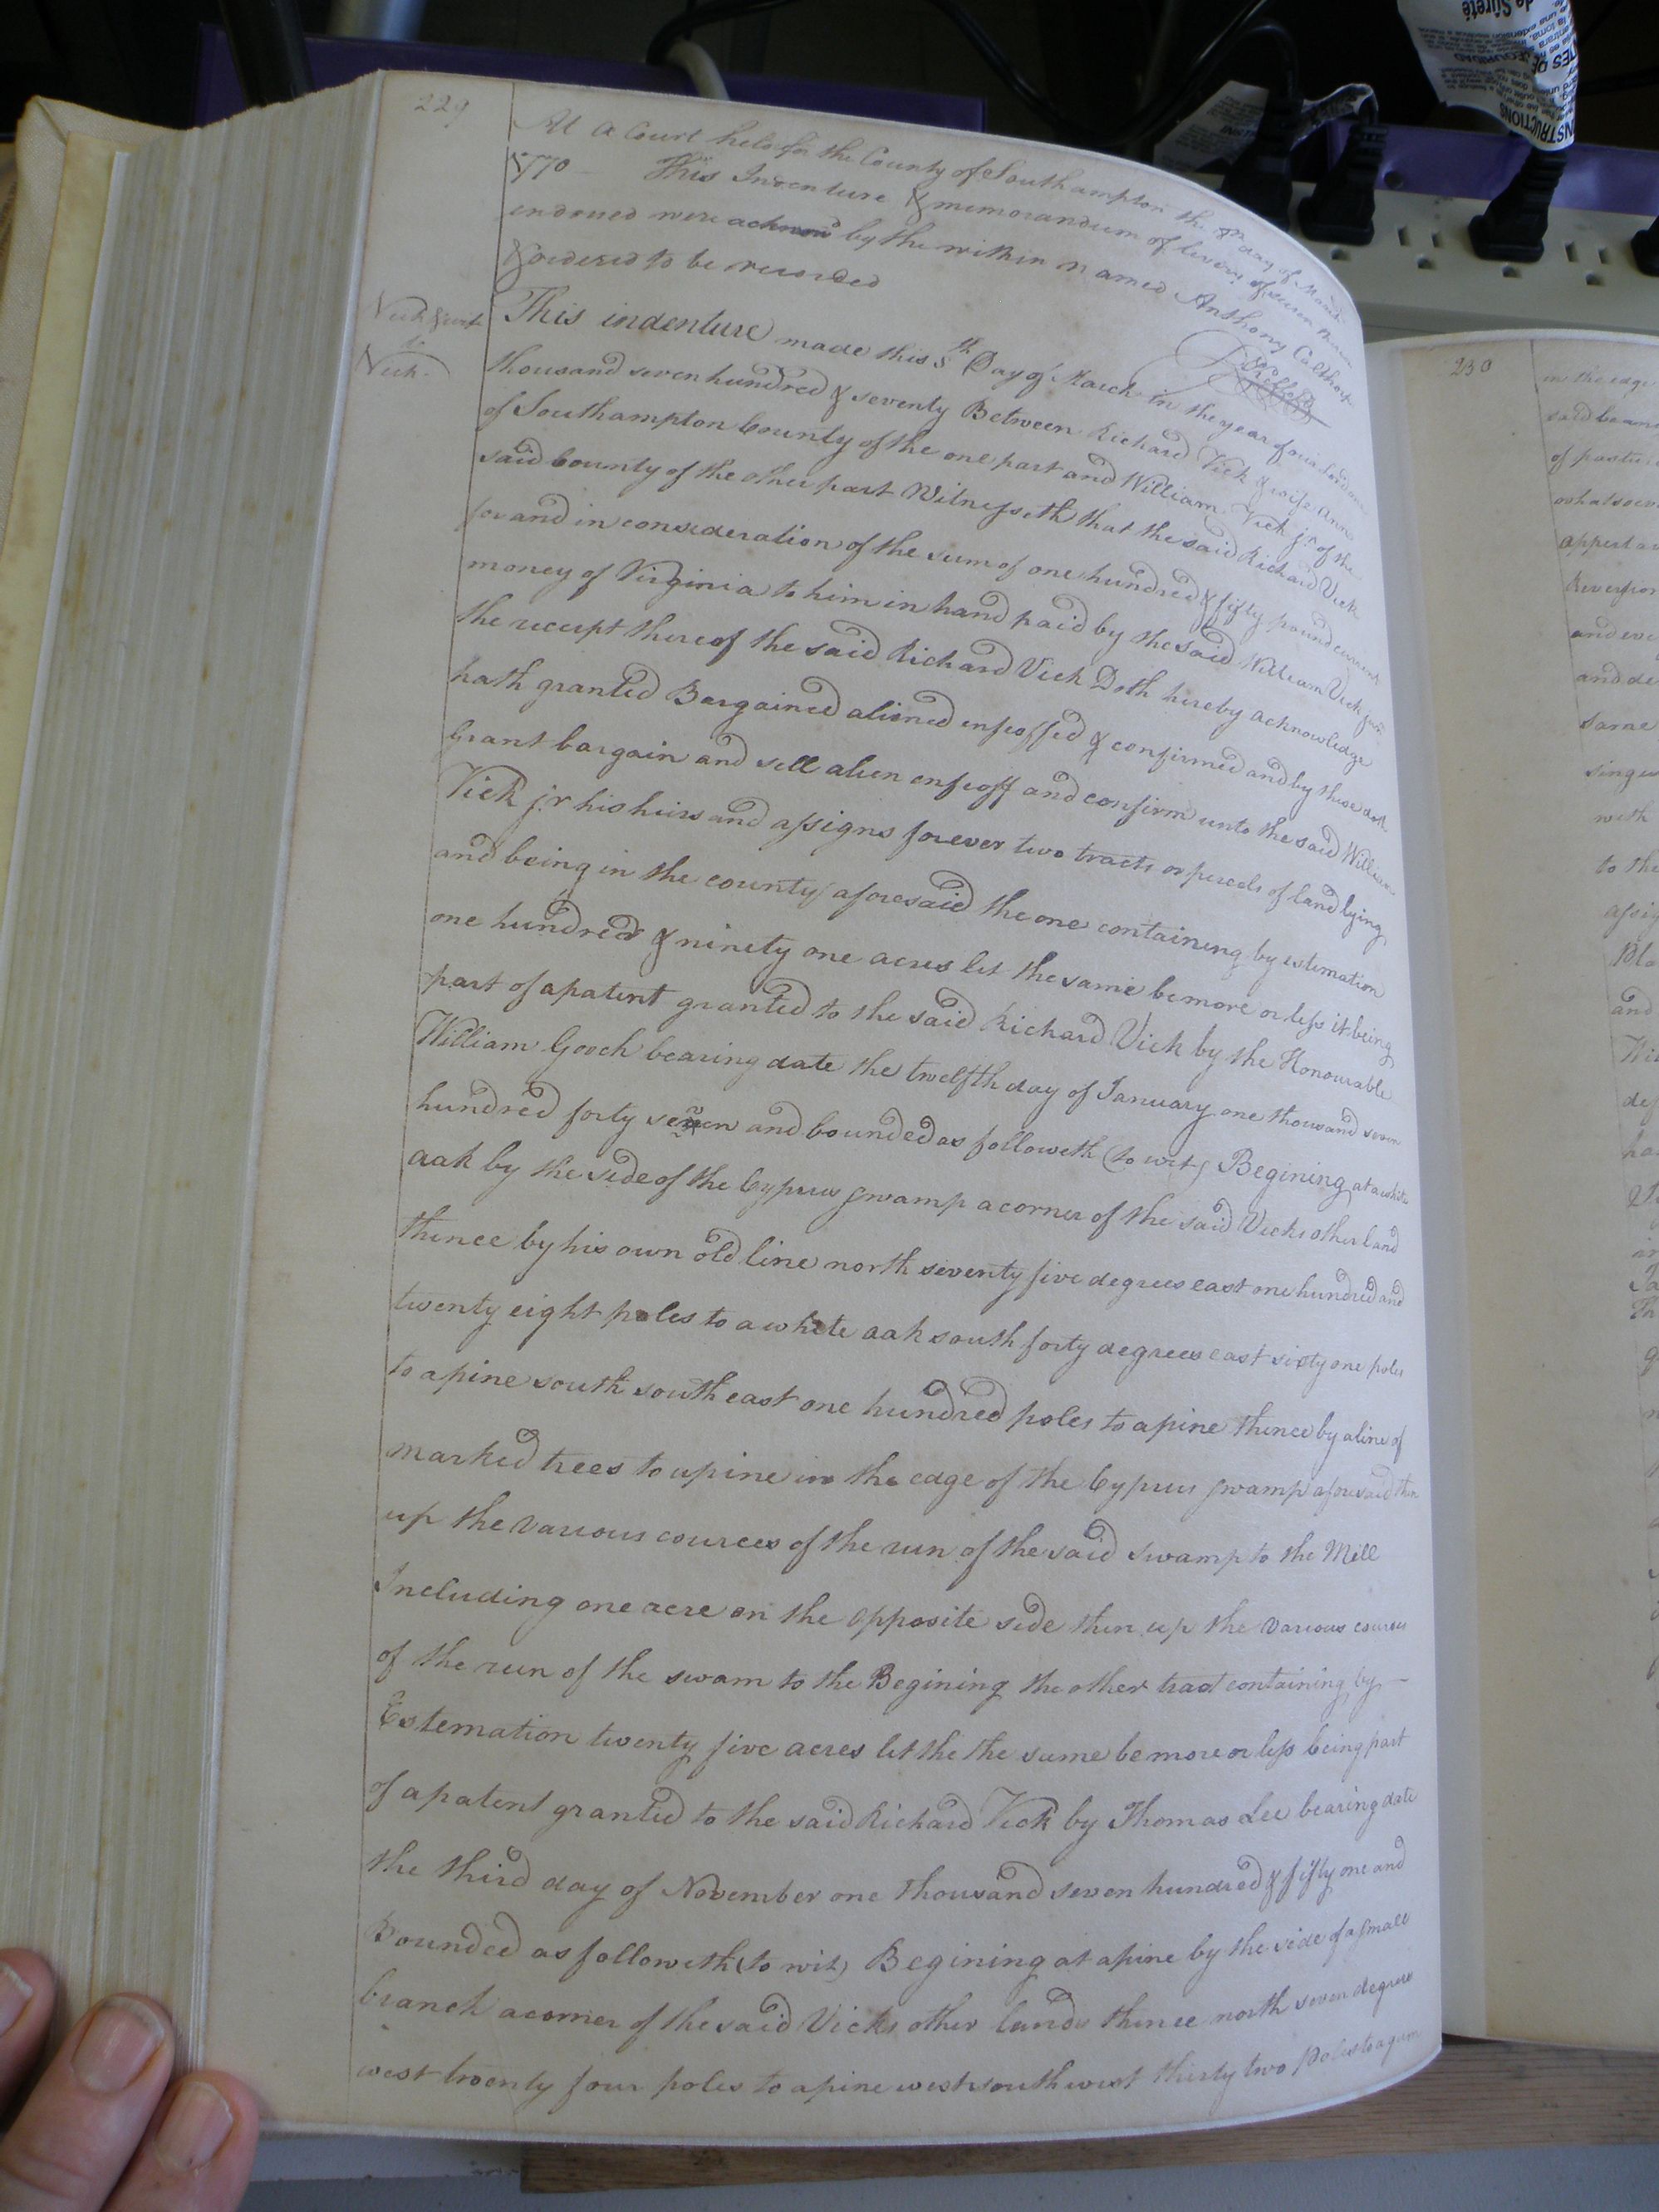 229
At a Court held for the County of Southampton the 8th day of March
1770 — This Indenture & memorandum of livery of seizen thereon
endorsed were acknowd by the within named Anthony Calthorpe
& ordered to be recorded
Vick & wife
to
Vick
This indenture made this 8th Day of March in the year of our Lord one
thousand seven hundred & seventy Between Richard Vick & wife Ann
of Southampton County of the one part and William Vick jr of the
said County of the other part Witnesseth that the said Richard Vick
for and in consideration of the sum of one hundred & fifty pound current
money of Virginia to him in hand paid by the said William Vick junr
the receipt thereof the said Richard Vick Doth hereby acknowledge
hath granted Bargained aliened enfeoffed & confirmed and by these doth
Grant bargain and sell alien enfeoff and confirm unto the said William
Vick jr his heirs and assigns forever two tracts or percels of land lying
and being in the county aforesaid the one containing by estemation
one hundred & ninety one acres let the same be more or less it being
part of a patent granted to the said Richard Vick by the Honourable
William Gooch bearing date the twelfth day of January one thousand seven
hundred forty seven and bounded as followeth (to wit) Begining at a white
oak by the side of the Cyprus swamp a corner of the said Vicks other land
thence by his own old line north seventy five degrees east one hundred and
twenty eight poles to a white oak south forty degrees east sixty one poles
to a pine south south east one hundred poles to a pine thence by a line of
marked trees to a pine in the edge of the Cyprus swamp aforesaid then
up the various cources of the run of the said swamp to the Mill
Including one acre on the opposite side then up the various courses
of the run of the swam to the Begining the other tract containing by —
Estemation twenty five acres let the the same be more or less being part
of a patent granted to the said Richard Vick by Thomas Lee bearing date
the third day of November one thousand seven hundred & fifty one and
Bounded as followeth (to wit) Begining at a pine by the side of a small
branch a corner of the said Vicks other lands thence north seven degrees
west twenty four poles to a pine west south west thirty two poles to a gum
230
in the edge
said bran
of pastur
whatsoev
appert
Reversion
and eve
and de
same
singu
with
to the
assig
and